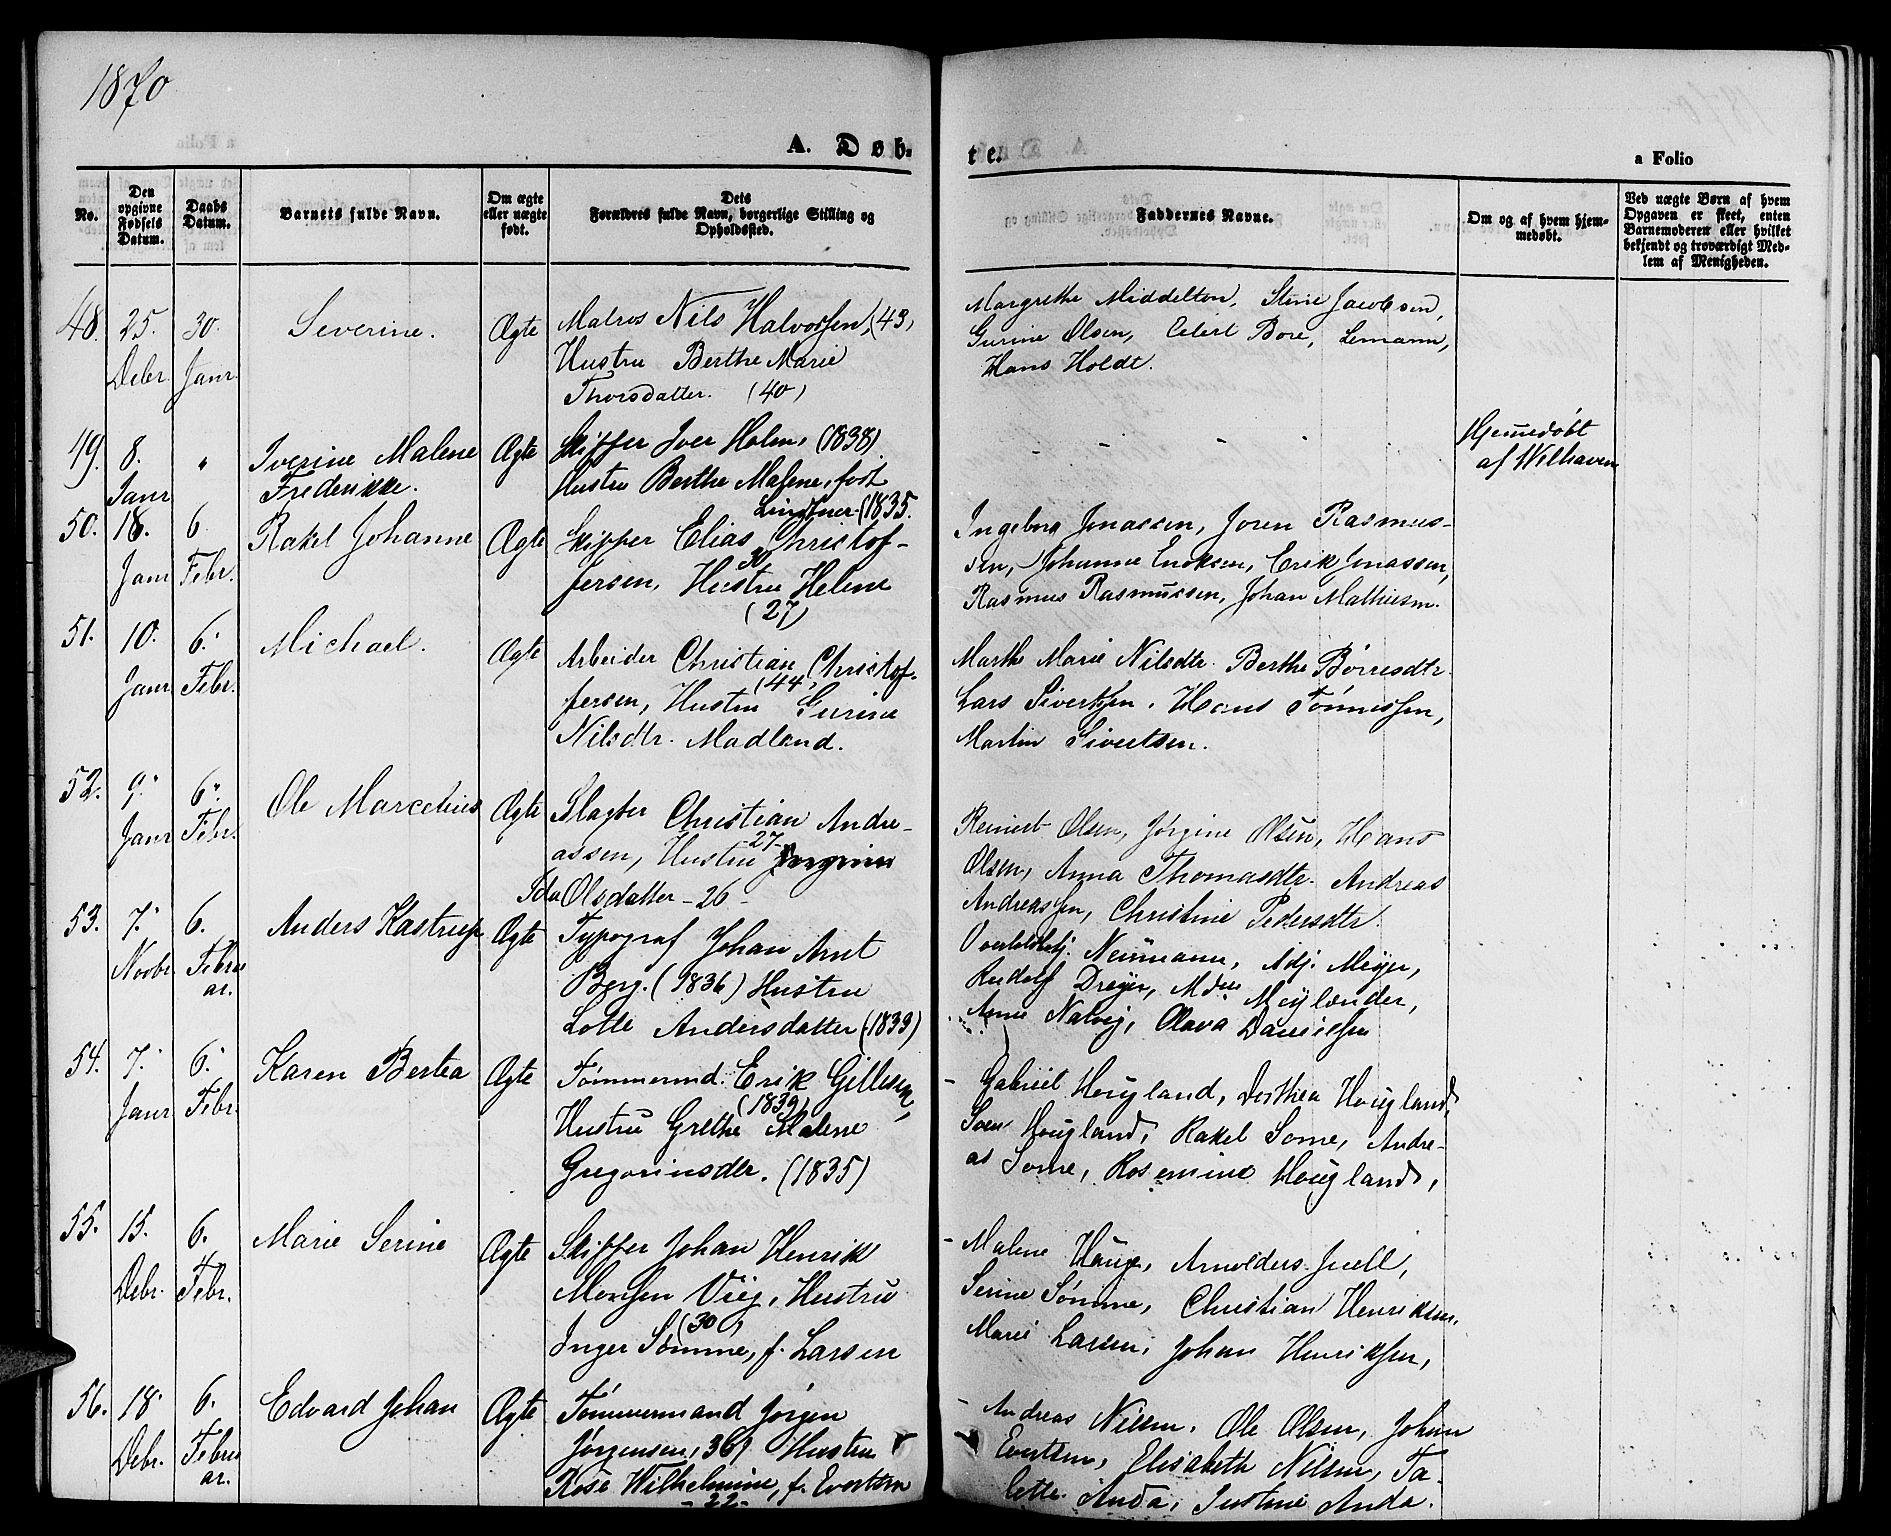 1870
A. Døb-
te.
a Folio
No.
Den opgivne Fødsels Datum.
Daabs Datum.
Barnets fulde Navn.
Om ægte eller uægte født.
Dets Forældres fulde Navn, borgerlige Stilling og Opholdssted.
Faddernes Navne.
Om og af hvem hjemmedøbt.
Ved uægte Børn af hvem Opgaven er skeet, enten Barnemoderen eller hvilket bekjendt og troværdigt Medlem af Menigheden.
48. 25. Debr. 30. Janr. Severine. Ægte
Matros Nils Halvorsen, (43)
Hustru Berthe Marie
Thorsdatter. (40)
Margrethe Middelton, Stine Jacobsen,
Gurine Olsen, Eilert Bore, Lemann,
Hans Holdt.
49. 8. Janr " Iverine Malene Ægte
Frederikke.
Skipper Iver Holm, (1838)
Hustru Berthe Malene, født
Lindtner (1835.
- - -
Hjemmedøbt
af Wilhaven
50. 18. Janr 6. Febr. Rakel Johanne Ægte
Skipper Elias Christof-
30
fersen, Hustru Helene
(27)
Ingeborg Jonassen, Joren Rasmus-
sen, Johanne Enoksen, Erik Jonassen,
Rasmus Rasmussen, Johan Mathiesen.
51. 10. Janr 6. Febr. Michael. Ægte
Arbeider Christian Christof-
(44)
fersen, Hustru Gurine
Nilsdtr. Madland.
Marthe Marie Nilsdtr. Berthe Børresdtr.
Lars Sivertsen. Hans Tønnessen,
Martin Sivertsen.
52. 9. Janr 6. Febr. Ole Marcelius Ægte
Slagter Christian Andre-
27
assen, Hustru
Ida Olsdatter - 26 -
Reinert Olsen, Jørgine Olsen, Hans
Olsen, Anna Thomasdtr. Andreas
Andreassen, Christine Pedersdtr.
53. 7. Novbr 6. Februar. Anders Kastrup Ægte
Typograf Johan Arnt
Berg. (1836) Hustru
Lotte Andersdatter (1839)
Neumann, Adj. Meyer,
Rudolf Dreyer, Mdm Meylænder,
Anne Natvig, Olava Danielsen
54. 7. Janr 6. Febr. Karen Bertea Ægte
Tømmermd. Erik Gillesen,
(1839)
Hustru Grethe Malene
Gregoriusdtr. (1835)
- Gabriel Hougland, Dorthea Hougland,
Sven Hougland, Rakel Some, Andre-
as Some, Rosemine Hougland,
55. 15. Debr. 6. Febr. Marie Serine Ægte
Skipper Johan Henrik
Monsen Vieg, Hustru
(30)
Inger Sømme, f. Larsen
- Malene Hauge, Arnolders Juell,
Serine Sømme, Christian Henriksen,
Marie Larsen, Johan Henriksen,
56. 18. Debr. 6. Februar. Edvard Johan Ægte
Tømmermand Jørgen
Jørgensen, 36, Hustru
Rose Wilhelmine, f. Evertsen
- 22 -
- Andreas Nilsen, Ole Olsen, Johan
Evertsen, Elisabeth Nilsen, Ta-
lette Anda, Justine Anda.